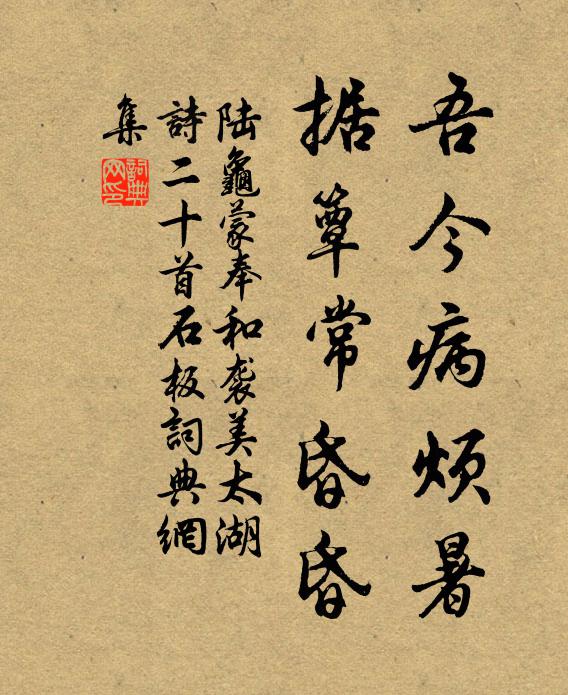 吾今病煩暑
据簟常昏昏
陆龜蒙奉和袭美太湖
詩二十首石板詞典網
集
詞典
网印